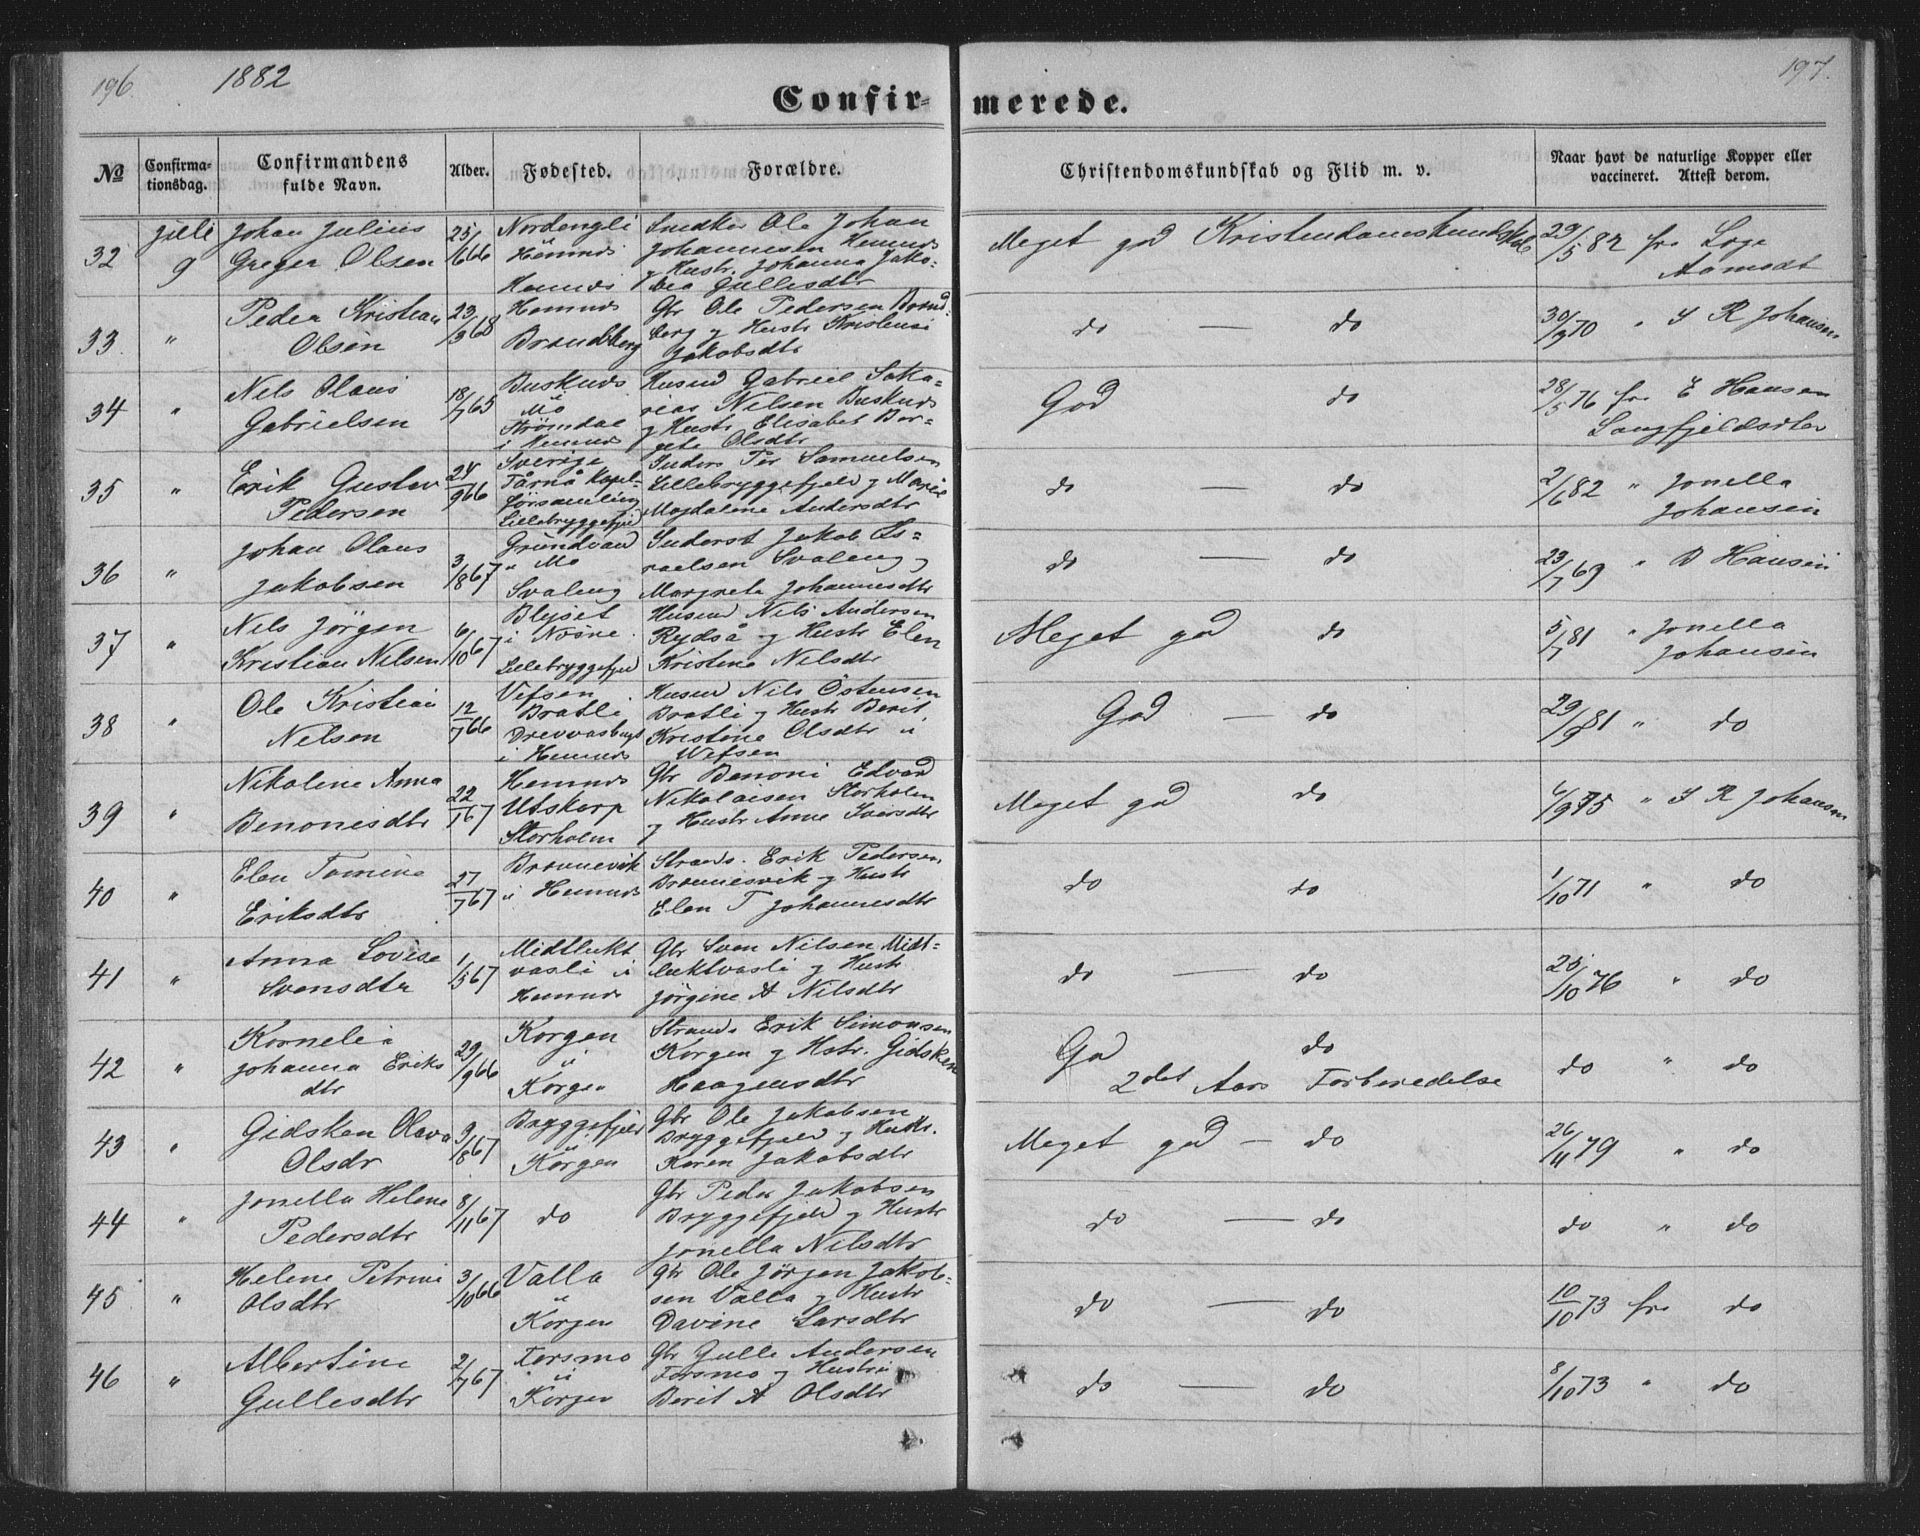 196. 1882
Confir- merede. 197.
№ Confirmationsdag. Confirmandens fulde Navn. Alder. Fødested. Forældre. Christendomskundskab og Flid m. v. Naar havt de naturlige Kopper eller vaccineret. Attest derom.
32 Juli 9
Johan Julius
Greger Olsen
25/6 66
Nordengli
Hemnæs
Hemnæs
Snedker Ole Johan
Johannesen Hemnæs
og Hustr. Johanna Jako-
bea Gullesdtr
Meget god Kristendomskundskab
29/5 82 fra Loge
Aamodt
33 "
Peder Kristian
Olsen
23/3 68
Hemnæs
Brandberg
Gbr Ole Pedersen Brand-
berg og Hustr Kristensi
Jakobsdtr
do — do
30/9 70 " I R Johansen
34 "
Nils Olaus
Gabrielsen
18/7 65
Busknæs
Mo
Strømdal
i Hemnæs
Husmd Gabriel Saka-
rias Nilsen Busknæs
og Hustr Elisabet Ber-
gete Olsdtr
God do
28/5 76 fra E Hansen
Langfjeldsdtr
35 "
Erik Gustav
Pedersen
24/9 66
Sverige
Tårnå Kapel-
församling
Lillebryggefjeld
Inders Per Samuelsen
Lillebryggefjeld og Marie
Magdalene Andersdtr
do — do
2/6 82 " Jonella
Johansen
36 "
Johan Olaus
Jakobsen
3/8 67
Grundvand
i Mo
Svaleng
Inderst Jakob Is-
raelsen Svaleng og
Margrete Johannesdtr
do — do
23/7 69 " D Hansen
37 "
Nils Jörgen
Kristian Nilsen
6/10 67
Blejset
i Nesne.
Lillebryggefjeld
Husmd Nils Andersen
Rydså og Hustr Elen
Kristina Nilsdtr
Meget god do
5/7 81 " Jonella
Johansen
38 "
Ole Kristian
Nelsen
12/7 66
Vefsen
Bratli
Drevvasbugt
i Hemnæs
Husmd Nils Östensen
Bratli og Hustr Berit
Kristine Olsdtr i
Wefsen
God — do
29/9 81 " do
39 "
Nikoline Anna
Benonisdtr
22/1 67
Hemnæs
Utskarp
Storholm
Gbr Benoni Edvard
Nikolaisen Storholm
og Hustr Anne Iversdtr
Meget god do
6/9 75 " I R Johansen
40 "
Elen Tomine
Eriksdtr
27/7 67
Bravnesvik
i Hemnæs
Strands. Erik Pedersen
Bravnesvik og Hustr
Elen T Johannesdtr
do do
1/10 71 " do
41 "
Anna Lovise
Svensdtr
1/5 67
Midtlukt
vasli i
Hemnæs
Gbr Sven Nilsen Midt-
luktvasli og Hustr.
Jørgine A Nilsdtr
do — do
25/10 76 " do
42 "
Kornelia
Johanna Eriks
dtr
29/9 66
Korgen
i
Korgen
Strands Erik Simonsen
Korgen og Hstr. Gidsken
Haagensdtr
God do
2det Aars Forberedelse
do " do
43 "
Gidsken Olava
Olsdr
9/8 67
Bryggefjeld
i
Körgen
Gbr Ole Jakobsen
Bryggefjeld og Hustr.
Karen Jakobsdtr
Meget god — do
26/11 79 " do
44 "
Jonella Helene
Pedersdtr
8/11 67
do
Gbr Peder Jakobsen
Bryggefjeld og Hustr
Jonella Nilsdtr
do — do
do " do
45 "
Helene Petrine
Olsdtr
3/10 66
Valla
i
Korgen
Gbr Ole Jörgen Jakob-
sen Valla og Hustr
Davine Larsdtr
do — do
10/10 73 fra do
46 "
Albertine
Gullesdtr
2/7 67
Forsmo
i
Korgen
Gbr Gulle Andersen
Forsmo og Hustru
Berit A Olsdtr
do — do
8/10 73 " do